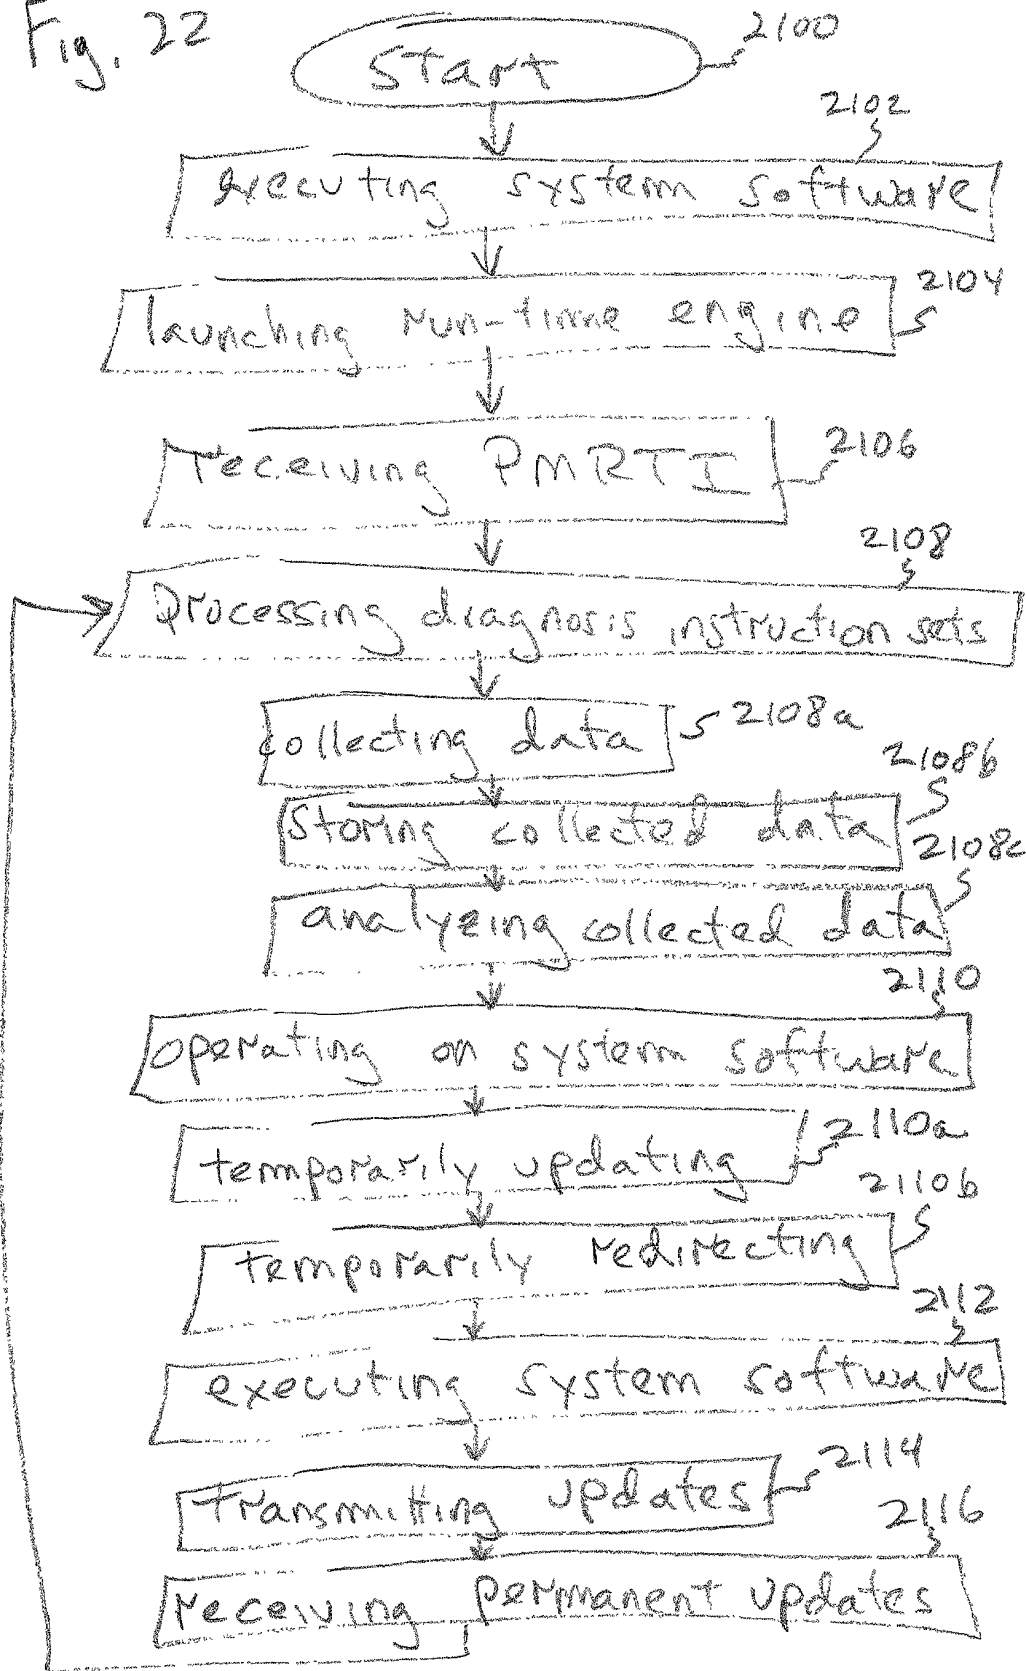 Fig. 22
Start 2100
2102
executing system software
2104
launching run-time engine
receiving PMRTI 2106
2108
Processing diagnosis instruction sets
collecting data 2108a
2108b
Storing collected data
2108c
analyzing collected data
2110
operating on system software
temporarily updating 2110a
2110b
temporarily redirecting
2112
executing system software
Transmitting updates 2114
2116
receiving permanent updates